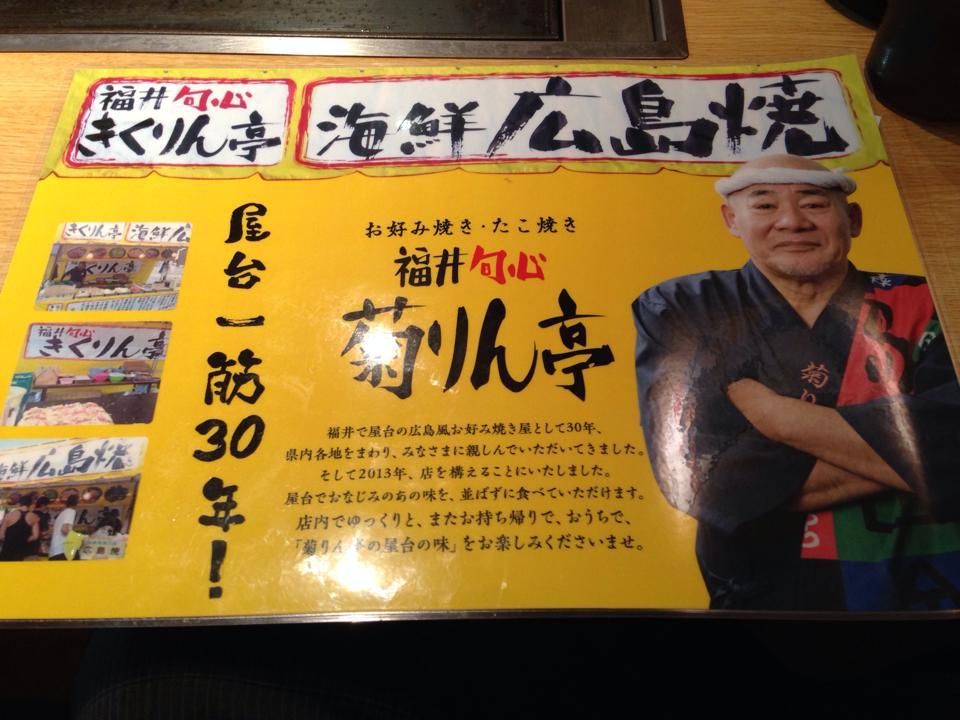 福井旬心
きくりん亭
海鮮広島焼
屋台一筋30年!
お好み焼き・たこ焼き
福井旬心
菊りん亭
福井で屋台の広島風お好み焼き屋として30年、
県内各地をまわり、みなさまに親しんでいただいてきました。
そして2013年、店を構えることにいたしました。
屋台でおなじみのあの味を、並ばずに食べていただけます。
店内でゆっくりと、またお持ち帰りで、おうちで、
「菊りん亭の屋台の味」をお楽しみくださいませ。
きくりん亭 海鮮広
きくりん亭
福井旬心
きくりん亭
海鮮広島焼
広島焼
菊り